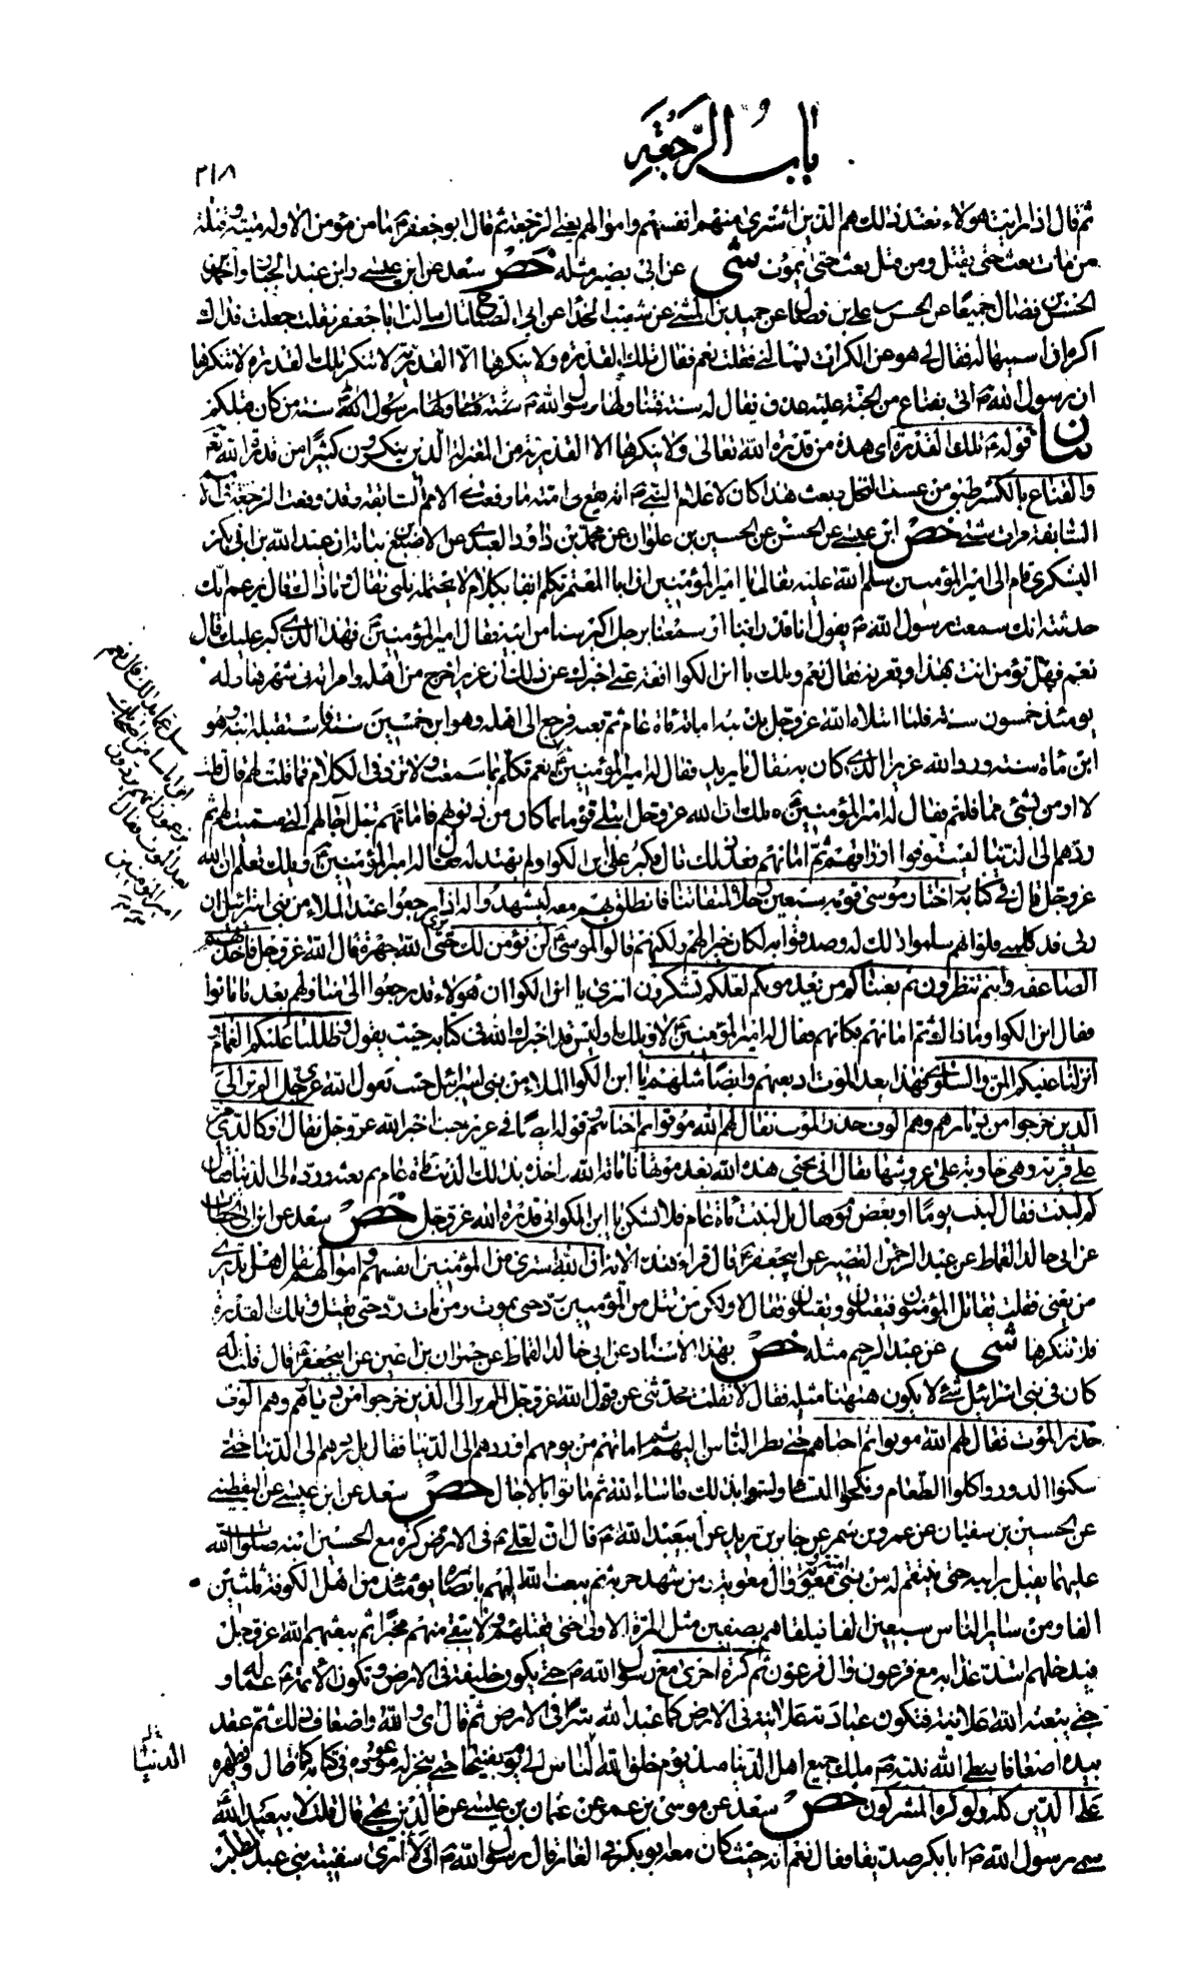 باب الرجعة
٢١٨
ثم قال اذا رايت هولاء فعند ذلك هم الذين اشترى منهم انفسهم واموالهم يعنى الرجعة ثم قال ابو جعفر ع ما من مؤمن الا وله ميتة وقتلة
من مات بعث حتى يقتل ومن قتل بعث حتى يموت شى عن ابى بصير مثله خص سعد عن ابن عيسى وابن عبد الجبار واحمد بن
الحسن بن فضال جميعا عن الحسن بن على بن فضال عن حميد بن المثنى عن شعيب الحذاء عن ابى الصباح قال سالت ابا جعفر فقلت جعلت فداك
اكره ان اسميها له فقال لى هو عن الكرات تسالنى فقلت نعم فقال تلك القدرة ولا ينكرها الا القدرية لا تنكر تلك القدرة لا تنكرها
ان رسول الله ص اتى بقناع من الجنة عليه عذق يقال له سنة فتناولها رسول الله ص سنة من كان قبلكم
بيان قوله ع تلك القدرة اى هذه من قدرة الله تعالى ولا ينكرها الا القدرية من المعتزلة الذين ينكرون كثيرا من قدرة الله تعالى
والقناع بالكسر طبق من عسب النخل وبعث هذا كان لاعلام النبى ص انه يقع فى امته ما وقعت فى الامم السابقة وقد وقعت الرجعة فى الامم
السابقة مرات شتى خص ابن عيسى عن الحسن عن الحسين بن علوان عن محمد بن داود العبدى عن الاصبغ بن نباتة ان عبد الله بن ابى بكر
اليشكرى قام الى امير المؤمنين سلم الله عليه فقال يا امير المؤمنين ان ابا المعتمر تكلم انفا بكلام لا يحتمله قلبى فقال وما ذاك قال يزعم انك
حدثته انك سمعت رسول الله ص يقول انا قد راينا او سمعنا برجل اكبر سنا من ابيه فقال امير المؤمنين ع فهذا الذى كبر عليك قال
نعم فهل تؤمن انت بهذا وتعرفه فقال نعم ويلك يا ابن الكوا افقه عنى اخبرك عن ذلك ان عزيرا خرج من اهله وامراته فى شهرها وله
يومئذ خمسون سنة فلما ابتلاه الله عز وجل بذنبه اماته مائة عام ثم بعثه فرجع الى اهله وهو ابن خمسين سنة فاستقبله ابنه وهو
ابن مائة سنة ورد الله عزيرا الذى كان به فقال ما تريد فقال له امير المؤمنين ع نعم تكلم بما سمعت ولا تزد فى الكلام فما قلت لهم قال قلت
لا اومن بشئ مما قلتم فقال له امير المؤمنين ع ويلك ان الله عز وجل ابتلى قوما بما كان من ذنوبهم فاماتهم قبل اجالهم التى سميت لهم ثم
ردهم الى الدنيا ليستوفوا ارزاقهم ثم اماتهم بعد ذلك قال فكبر على ابن الكوا ولم يهتد له فقال له امير المؤمنين ع ويلك تعلم ان الله
عز وجل قال فى كتابه واختار موسى قومه سبعين رجلا لميقاتنا فانطلق بهم معه ليشهدوا له اذا رجعوا عند الملاء من بنى اسرائيل ان
ربى قد كلمنى فلو انهم سلموا ذلك له وصدقوا به لكان خيرا لهم ولكنهم قالوا لموسى ع لن نؤمن لك حتى نرى الله جهرة قال الله عز وجل فاخذتهم
الصاعقة وانتم تنظرون ثم بعثناكم من بعد موتكم لعلكم تشكرون اترى يا ابن الكوا ان هولاء قد رجعوا الى منازلهم بعد ما ماتوا
فقال ابن الكوا وما ذاك ثم اماتهم مكانهم فقال له امير المؤمنين ع لا ويلك اوليس قد اخبرك الله فى كتابه حيث يقول وظللنا عليكم الغمام و
انزلنا عليكم المن والسلوى فهذا بعد الموت اذ بعثهم وايضا مثلهم يا ابن الكوا الملاء من بنى اسرائيل حيث يقول الله عز وجل الم تر الى
الذين خرجوا من ديارهم وهم الوف حذر الموت فقال لهم الله موتوا ثم احياهم وقوله ايضا فى عزير حيث اخبر الله عز وجل فقال او كالذى مر
على قرية وهى خاوية على عروشها فقال انى يحيى هذه الله بعد موتها فاماته الله واخذه بذلك الذنب مائة عام ثم بعثه ورده الى الدنيا فقال
كم لبثت فقال لبثت يوما او بعض يوم وقال بل لبثت مائة عام فلا تشكن يا ابن الكوا فى قدرة الله عز وجل خص سعد عن ابن ابى الخطاب
عن ابى خالد القماط عن عبد الرحمن القصير عن ابى جعفر ع قال قرا هذه الاية ان الله اشترى من المؤمنين انفسهم واموالهم فقال هل تدرى
من يعنى فقلت يقاتل المؤمنون فيقتلون ويقتلون فقال لا ولكن من قتل من المؤمنين رد حتى يموت ومن مات رد حتى يقتل وتلك القدرة
فلا تنكرها شى عن عبد الرحيم مثله خص بهذا الاسناد عن ابى خالد القماط عن حمران بن اعين عن ابى جعفر ع قال قلت له
كان فى بنى اسرائيل شئ لا يكون هيهنا مثله فقال لا فقلت فحدثنى عن قول الله عز وجل الم تر الى الذين خرجوا من ديارهم وهم الوف
حذر الموت فقال لهم الله موتوا ثم احياهم حتى نظر الناس اليهم ثم اماتهم من يومهم او ردهم الى الدنيا فقال بل ردهم الى الدنيا حتى
سكنوا الدور واكلوا الطعام ونكحوا النساء ولبثوا بذلك ما شاء الله ثم ماتوا بالاجال خص سعد عن ابن عيسى عن اليقطينى
عن الحسين بن سفيان عن عمرو بن شمر عن جابر بن يزيد عن ابى عبد الله ع قال ان لعلى ع فى الارض كرة مع الحسين ابنه صلوات الله
عليهما يقبل برايته حتى ينتقم له من بنى امية ومعوية وال معوية ومن شهد حربه ثم يبعث الله اليهم بانصاره يومئذ من اهل الكوفة ثلثين
الفا ومن ساير الناس سبعين الفا فيلقاهم بصفين مثل المرة الاولى حتى يقتلهم ولا يبقى منهم مخبرا ثم يبعثهم الله عز وجل
فيدخلهم اشد عذابه مع فرعون وال فرعون ثم كرة اخرى مع رسول الله ص حتى يكون خليفة فى الارض وتكون الائمة ع عماله و
حتى يبعثه الله علانية فتكون عبادته علانية فى الارض كما عبد الله سرا فى الارض ثم قال اى والله واضعاف ذلك ثم عقد
بيده اضعافا يعطى الله نبيه ص ملك جميع اهل الدنيا منذ يوم خلق الله الدنيا الى يوم يفنيها حتى ينجز له موعوده فى كتابه كما قال ويظهره
على الدين كله ولو كره المشركون خص سعد عن موسى بن عمر عن عثمان بن عيسى عن خالد بن يحيى قال قلت لابى عبد الله
سمى رسول الله ص ابا بكر صديقا فقال نعم انه حيث كان معه ابو بكر فى الغار قال رسول الله ص انى لارى سفينة بنى عبد المطلب
سل عما بدا لك قال نعم
ان اناسا من اصحابك
يزعمون انهم يردون
بعد الموت فقال
امير المؤمنين
الدنيا